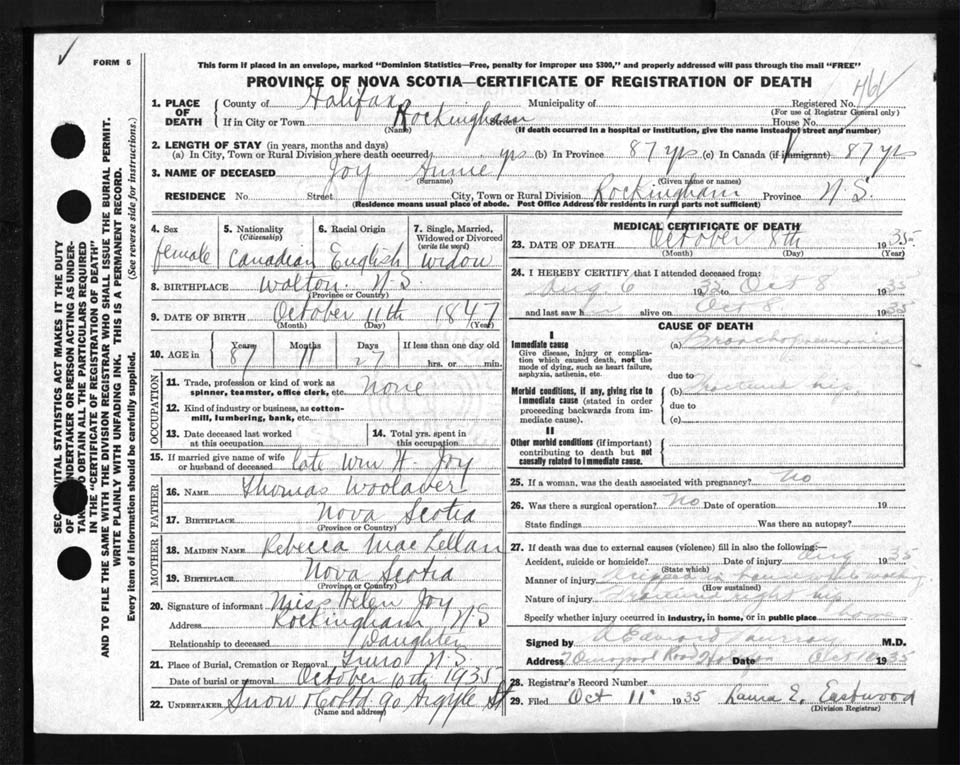 FORM 6
This form if placed in an envelope, marked "Dominion Statistics—Free, penalty for improper use $300," and properly addressed will pass through the mail "FREE"
PROVINCE OF NOVA SCOTIA—CERTIFICATE OF REGISTRATION OF DEATH
1. PLACE OF DEATH
County of Halifax Municipality of Registered No.
(For use of Registrar General only)
If in City or Town Rockingham Street House No.
(Name) (If death occurred in a hospital or institution, give the name instead of street and number)
2. LENGTH OF STAY (in years, months and days)
(a) In City, Town or Rural Division where death occurred yrs (b) In Province 87 yrs (c) In Canada (if immigrant) 87 yrs
3. NAME OF DECEASED Joy Annie
(Surname) (Given name or names)
RESIDENCE No. Street City, Town or Rural Division Rockingham Province N.S.
(Residence means usual place of abode. Post Office Address for residents in rural parts not sufficient)
4. Sex
female
5. Nationality
(Citizenship)
Canadian
6. Racial Origin
English
7. Single, Married, Widowed or Divorced
(write the word)
Widow
8. BIRTHPLACE Walton N.S.
(Province or Country)
9. DATE OF BIRTH October 11th 1847
(Month) (Day) (Year)
10. AGE in Years Months Days If less than one day old
87 11 27 hrs. or min.
OCCUPATION
11. Trade, profession or kind of work as spinner, teamster, office clerk, etc. None
12. Kind of industry or business, as cotton-mill, lumbering, bank, etc.
13. Date deceased last worked at this occupation
14. Total yrs. spent in this occupation
15. If married give name of wife or husband of deceased late Wm H. Joy
FATHER
16. NAME Thomas Woolaver
17. BIRTHPLACE Nova Scotia
(Province or Country)
MOTHER
18. MAIDEN NAME Rebecca MacLellan
19. BIRTHPLACE Nova Scotia
(Province or Country)
20. Signature of informant Miss Helen Joy
Address Rockingham N.S
Relationship to deceased Daughter
21. Place of Burial, Cremation or Removal Truro N.S
Date of burial or removal October 10th 1935
22. UNDERTAKER Snow & Co Ltd. 90 Argyle St
(Name and address)
MEDICAL CERTIFICATE OF DEATH
23. DATE OF DEATH October 8th 1935
(Month) (Day) (Year)
24. I HEREBY CERTIFY that I attended deceased from:
Aug. 6 1935 Oct 8 1935
and last saw her alive on Oct 8 1935
CAUSE OF DEATH
I
Immediate cause
Give disease, injury or complication which caused death, not the mode of dying, such as heart failure, asphyxia, asthenia, etc.
(a) Bronchopneumonia
due to
Morbid conditions, if any, giving rise to immediate cause (stated in order proceeding backwards from immediate cause).
(b) Fractured hip
due to
(c)
II
Other morbid conditions (if important) contributing to death but not causally related to immediate cause.
25. If a woman, was the death associated with pregnancy? No
26. Was there a surgical operation? No Date of operation 19
State findings Was there an autopsy?
27. If death was due to external causes (violence) fill in also the following:—
Accident, suicide or homicide? Date of injury Aug 1935
(State which)
Manner of injury
(How sustained)
Nature of injury Fractured right hip
Specify whether injury occurred in industry, in home, or in public place home
Signed by M.D.
Address Road Halifax Date Oct 10 1935
28. Registrar's Record Number
29. Filed Oct 11 1935 Laura E. Eastwood
(Division Registrar)
VITAL STATISTICS ACT MAKES IT THE DUTY
OF UNDERTAKER OR PERSON ACTING AS UNDER-
TO OBTAIN ALL THE PARTICULARS REQUIRED
IN THE "CERTIFICATE OF REGISTRATION OF DEATH"
AND TO FILE THE SAME WITH THE DIVISION REGISTRAR WHO SHALL ISSUE THE BURIAL PERMIT.
WRITE PLAINLY WITH UNFADING INK. THIS IS A PERMANENT RECORD.
Every item of information should be carefully supplied. (See reverse side for instructions.)